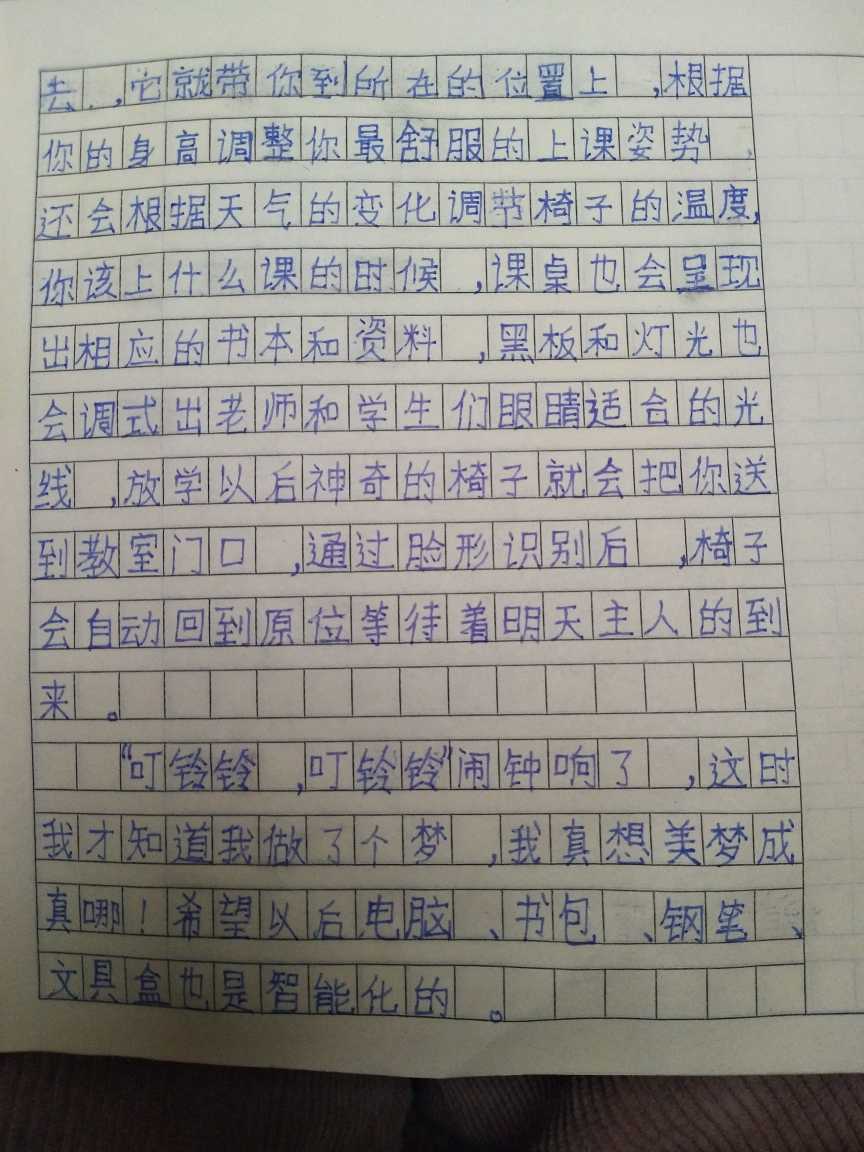 去，它就带你到所在的位置上，根据
你的身高调整你最舒服的上课姿势，
还会根据天气的变化调节椅子的温度，
你该上什么课的时候，课桌也会呈现
出相应的书本和资料，黑板和灯光也
会调式出老师和学生们眼睛适合的光
线，放学以后神奇的椅子就会把你送
到教室门口，通过脸形识别后，椅子
会自动回到原位等待着明天主人的到
来。
“叮铃铃，叮铃铃”闹钟响了，这时
我才知道我做了个梦，我真想美梦成
真哪！希望以后电脑、书包、钢笔、
文具盒也是智能化的。